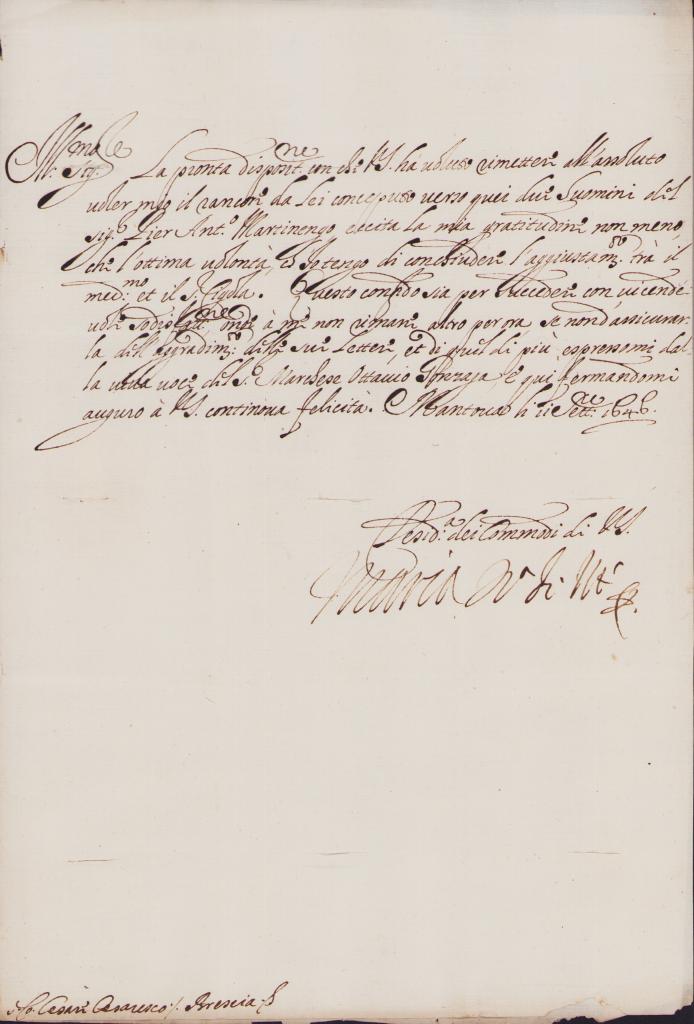 Ill.mo Sig.re La pronta disposit.ne con che V.S. ha voluto rimetter all'assoluto
voler mio il rancore da Lei conceputo verso quei due huomini del
sig.r Pier Ant.o Martinengo eccita la mia gratitudine non meno,
che l'ottima volontà, ch'Io tengo di conchiudere l'aggiustam.to trà il
med.mo et il S. Cigola. Questo confido sia per succedere con vicende-
vole sodisfat.ne onde à me non rimane altro per ora se non d'assicurar-
la dell'aggradim.to delle sue Lettere, et di quel di più espressomi dal-
la viva voce del S.r Marchese Ottavio e qui fermandomi
auguro à V.S. continova felicità. Mantova li 11 Sett.re 1646.
Desid.a dei Commodi di V.S.
Maria
Cesare Cesaresco /. Brescia